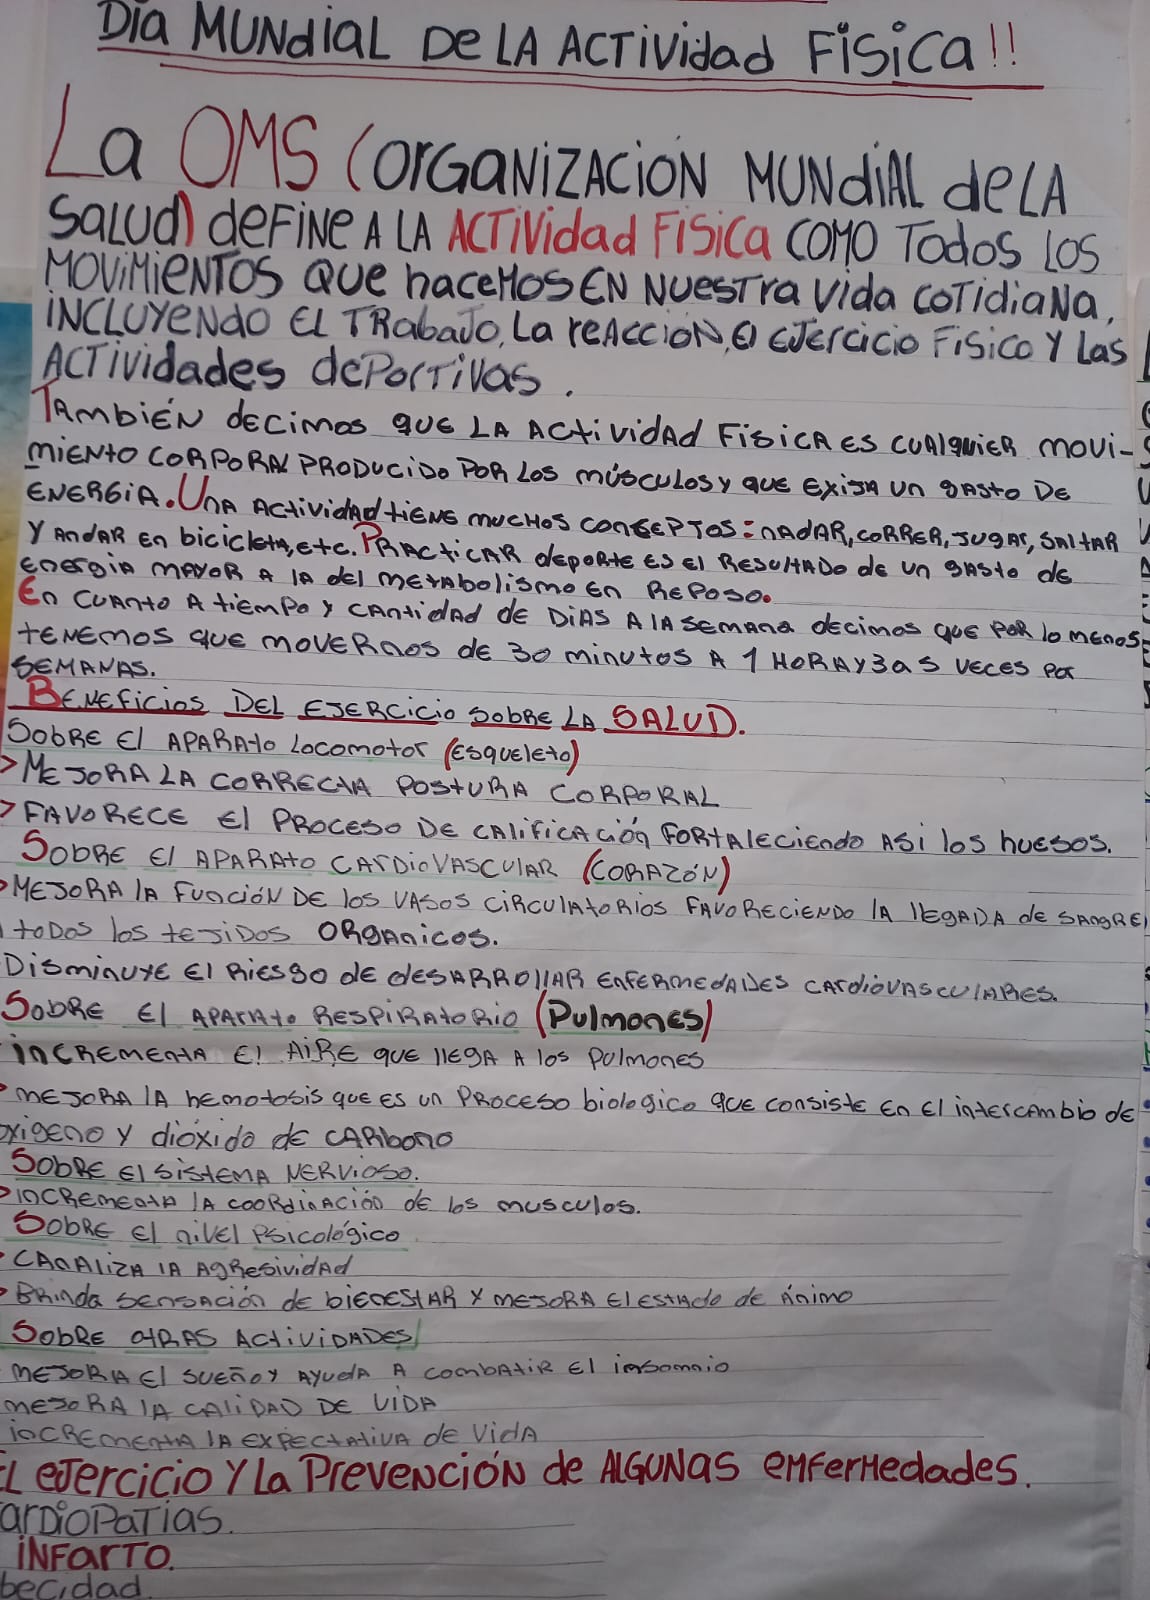 Dia MUNdiaL De LA ACTividad Fisica!!
La OMS (OrGaNiZACioN MUNdiAL de LA
SaLud) deFiNe A LA ACTividad Fisica COMO Todos Los
MOViMieNTOS QUe haceMos EN NUesTra Vida coTidiaNa,
iNCLUYeNdo EL TRabaJo, La reAccioN, El eJercicio Fisico Y Las
ACTividades dePorTivas.
TAmbiéN decimos que LA Actividad Fisica es cualquier movi-
miento corporal producido por los músculos y que exija un gasto de
energia. Una actividad tiene muchos conceptos: nadar, correr, jugar, saltar
y andar en bicicleta, etc. Practicar deporte es el resultado de un gasto de
energia mayor a la del metabolismo en reposo.
En cuanto a tiempo y cantidad de dias a la semana decimos que por lo menos
tenemos que movernos de 30 minutos a 1 hora y 3 a 5 veces por
semanas.
Beneficios del ejercicio sobre la SALUD.
Sobre el aparato locomotor (esqueleto)
> Mejora la correcta postura corporal
> Favorece el proceso de calificación fortaleciendo asi los huesos.
Sobre el aparato cardiovascular (corazón)
> Mejora la función de los vasos circulatorios favoreciendo la llegada de sangre
todos los tejidos organicos.
Disminuye el riesgo de desarrollar enfermedades cardiovasculares.
Sobre el aparato respiratorio (Pulmones)
incrementa el aire que llega a los pulmones
> mejora la hemotosis que es un proceso biologico que consiste en el intercambio de
oxigeno y dióxido de carbono
Sobre el sistema nervioso.
> incrementa la coordinación de los musculos.
Sobre el nivel psicológico
> canaliza la agresividad
> Brinda sensación de bienestar y mejora el estado de ánimo
Sobre otras actividades
mejora el sueño y ayuda a combatir el insomnio
mejora la calidad de vida
incrementa la expectativa de vida
EL eJercicio Y La PreveNcióN de ALGUNas eMferMedades.
ardioPaTias.
iNFarTO.
becidad.